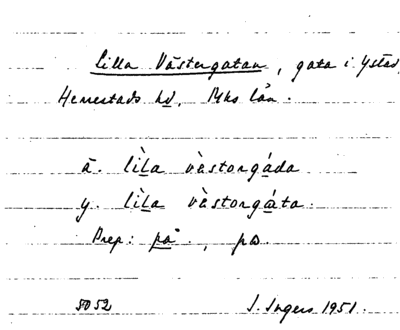 Lilla Västergatan, gata i Ystad,
Herrestads hd, Mhs län.
ä. lìla vàstorgáda
y. lìla vàstorgáta.
Prep: på., pa
5052 I. Ingers 1951.